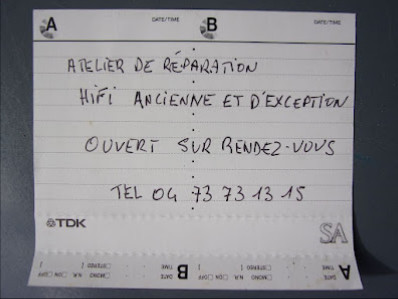 A DATE/TIME B DATE/TIME
ATELIER DE RÉPARATION
HIFI ANCIENNE ET D'EXCEPTION
OUVERT SUR RENDEZ-VOUS
TEL 04 73 73 13 15
TDK SA
A DATE TIME B DATE TIME
N.R. ON OFF STEREO MONO N.R. ON OFF STEREO MONO